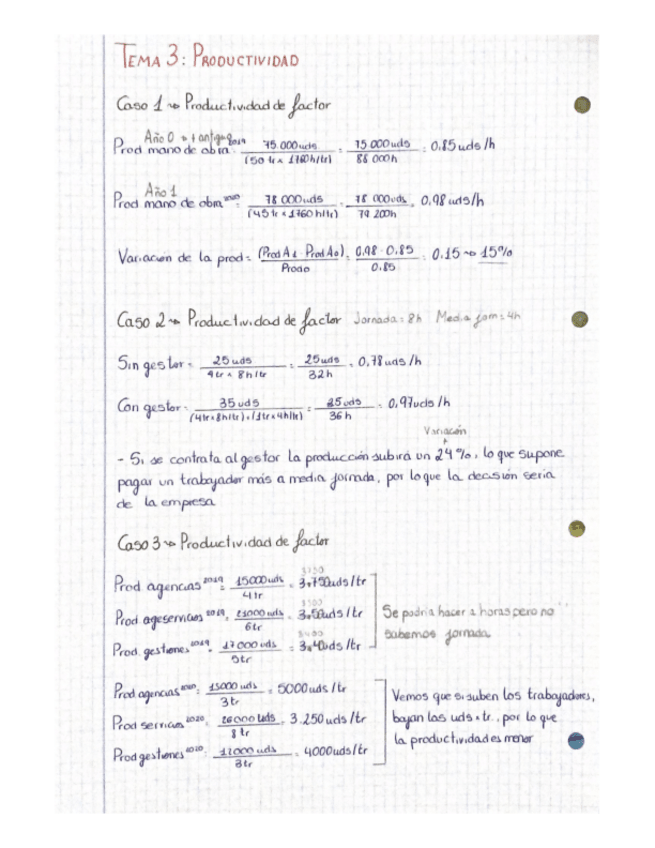 TEMA 3: PRODUCTIVIDAD
Caso 1 ⇝ Productividad de factor
Año 0 ⇝ + antiguo
Prod mano de obra 2019 = 75.000 uds / (50 tr x 1760 h/tr) = 75 000 uds / 88 000h = 0.85 uds/h
Año 1
Prod mano de obra 2020 = 78 000 uds / (45 tr x 1760 h/tr) = 78 000 uds / 79 200h = 0,98 uds/h
Variación de la prod = (Prod A1 - Prod A0) / Prod0 = 0,98 - 0,85 / 0.85 = 0.15 ⇝ 15%
Caso 2 ⇝ Productividad de factor Jornada = 8h Media jorn = 4h
Sin gestor = 25 uds / 4tr x 8h/tr = 25 uds / 32h = 0,78 uds/h
Con gestor = 35 uds / (4tr x 8h/tr) + (1tr x 4h/tr) = 35 uds / 36 h = 0,97 uds/h
Variación
- Si se contrata al gestor la producción subirá un 24%, lo que supone
pagar un trabajador más a media jornada, por lo que la decisión sería
de la empresa
Caso 3 ⇝ Productividad de factor
Prod agencias 2019 = 15000 uds / 4 tr = 3750 uds/tr
Prod servicios 2019 = 21000 uds / 6tr = 3500 uds/tr
Prod. gestiones 2019 = 17 000 uds / 5tr = 3400 uds/tr
Se podría hacer a horas pero no
sabemos jornada
Prod agencias 2020 = 15000 uds / 3 tr = 5000 uds/tr
Prod servicios 2020 = 26000 uds / 8 tr = 3.250 uds/tr
Prod gestiones 2020 = 12000 uds / 3tr = 4000 uds/tr
Vemos que si suben los trabajadores,
bajan las uds x tr., por lo que
la productividad es menor